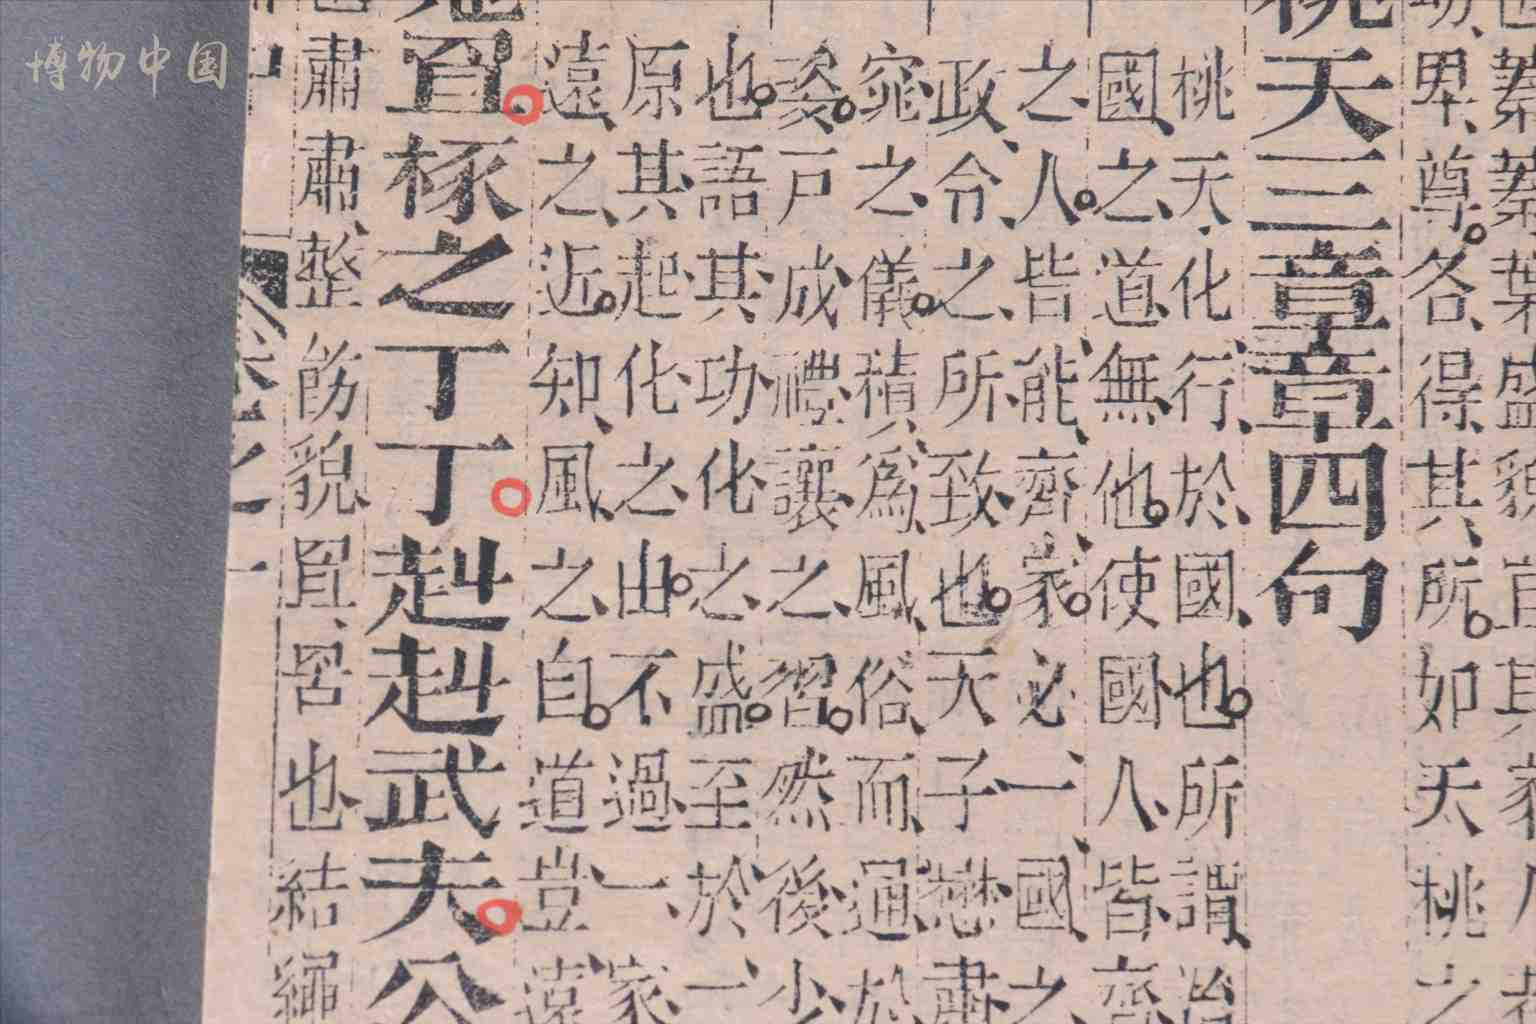 蓁蓁葉盛貌宜其家人
卑尊各得其所如夭桃之
桃夭三章章四句
桃夭化行於國也所謂治
國之道無他使國人皆齊
之人皆能齊家必一國之
政令之所致也天子懋肅
窕之儀積為風俗而通於
姿戸成禮讓之習然後少
也語其功化之盛至於一
原其起化之由不過一家
遠之近知風之自道豈遠
罝椓之丁丁赳赳武夫公
肅肅整飭貌罝罟也結繩
博物中国